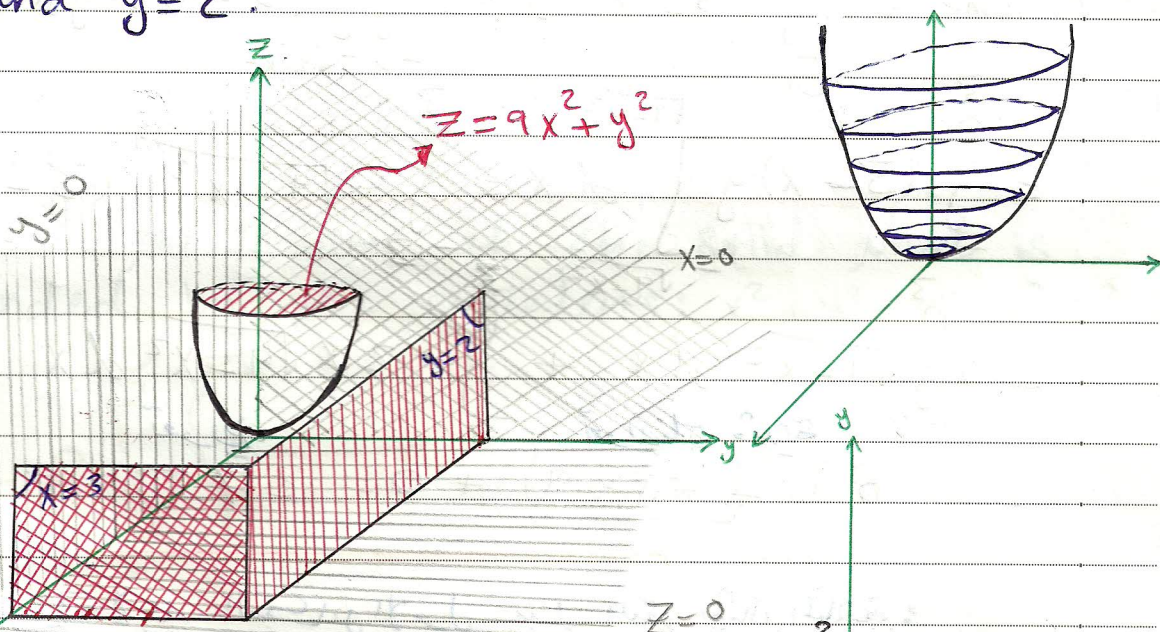 and y=2.
z
z=9x²+y²
y=0
x=0
y=2
y
y
x=3
z=0
2